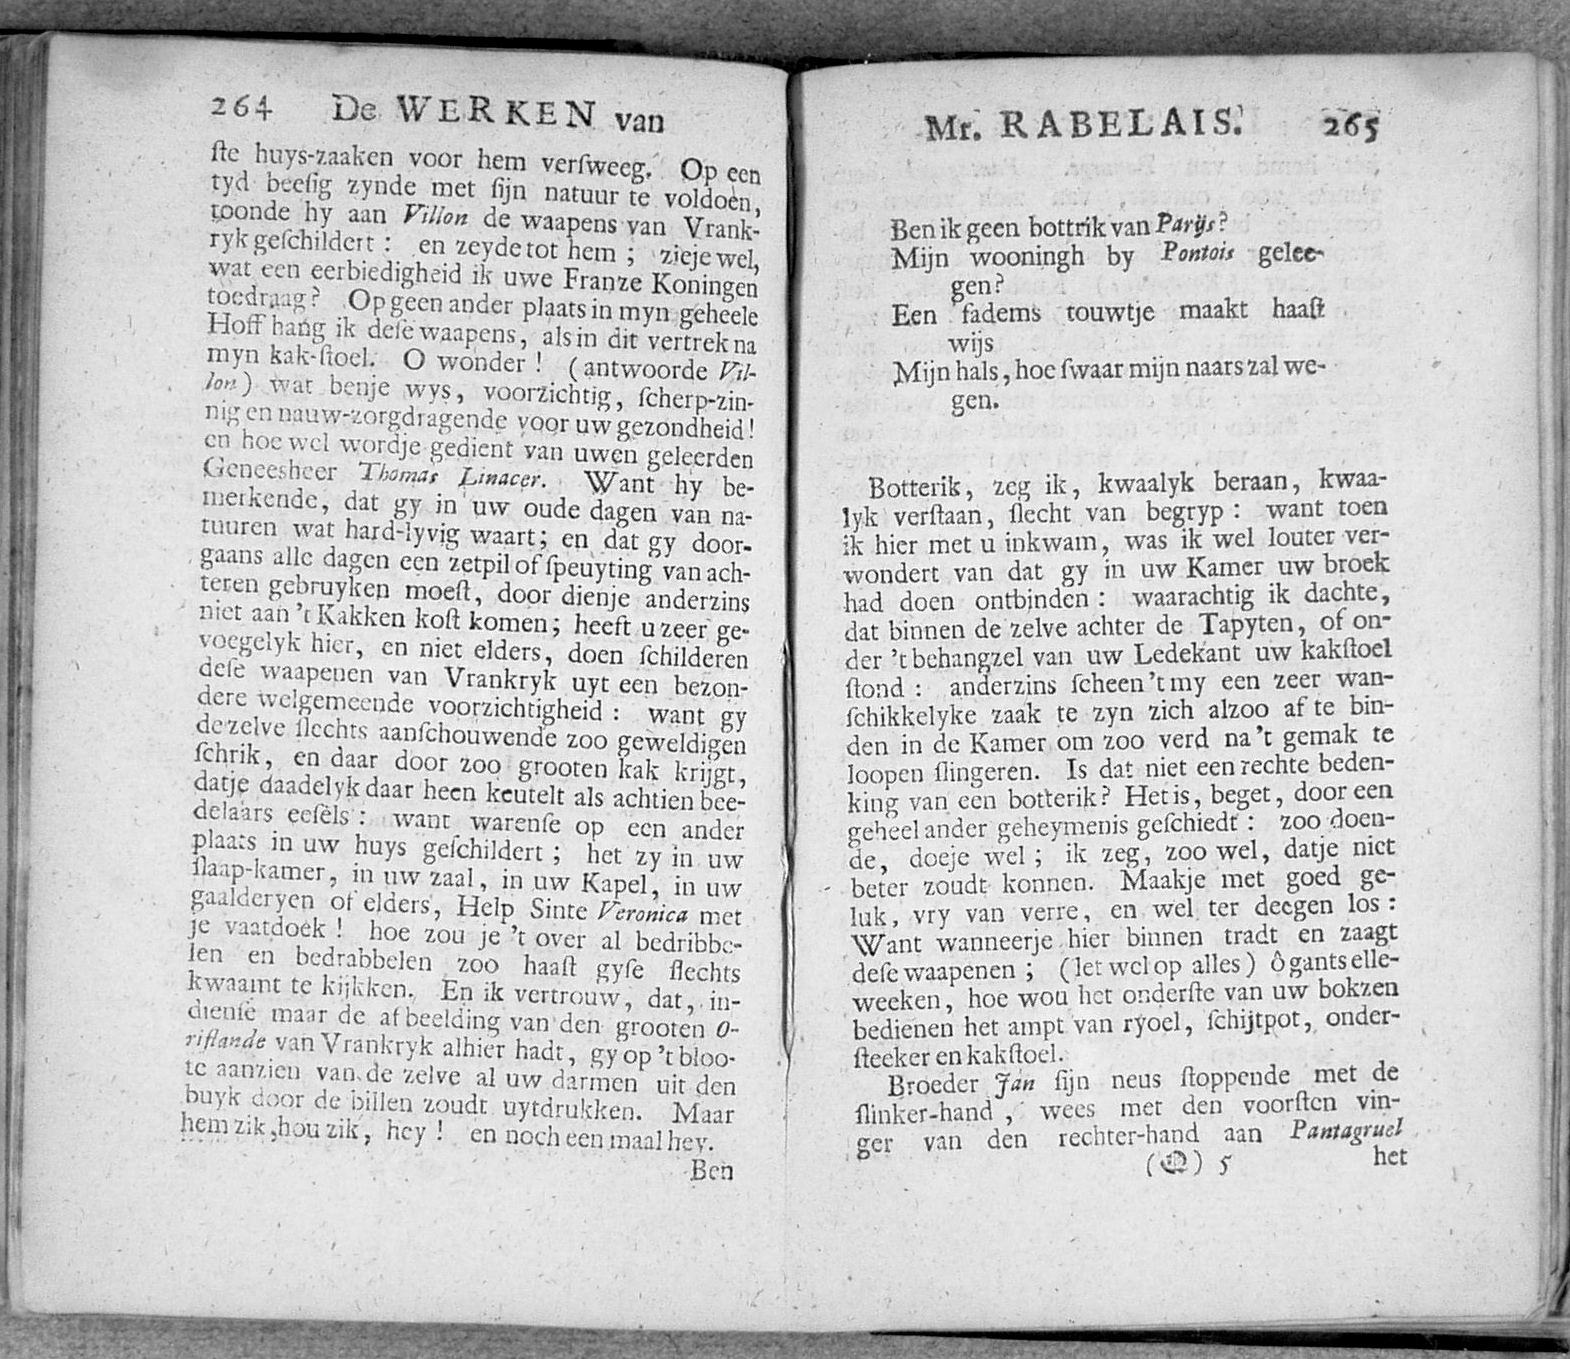 264 De WERKEN van
ſte huys-zaaken voor hem verſweeg. Op een
tyd beeſig zynde met ſijn natuur te voldoen,
toonde hy aan Villon de waapens van Vrank-
ryk geſchildert : en zeyde tot hem ; zieje wel,
wat een eerbiedigheid ik uwe Franze Koningen
toedraag? Op geen ander plaats in myn geheele
Hoff hang ik deſe waapens, als in dit vertrek na
myn kak-ſtoel. O wonder ! (antwoorde Vil-
lon) wat benje wys, voorzichtig, ſcherp-zin-
nig en nauw-zorgdragende voor uw gezondheid!
en hoe wel wordje gedient van uwen geleerden
Geneesheer Thomas Linacer. Want hy be-
merkende, dat gy in uw oude dagen van na-
tuuren wat hard-lyvig waart; en dat gy door-
gaans alle dagen een zetpil of ſpeuyting van ach-
teren gebruyken moeſt, door dienje anderzins
niet aan 't Kakken koſt komen; heeft u zeer ge-
voegelyk hier, en niet elders, doen ſchilderen
deſe waapenen van Vrankryk uyt een bezon-
dere welgemeende voorzichtigheid : want gy
dezelve ſlechts aanſchouwende zoo geweldigen
ſchrik, en daar door zoo grooten kak krijgt,
datje daadelyk daar heen keutelt als achtien bee-
delaars eeſels : want warenſe op een ander
plaats in uw huys geſchildert ; het zy in uw
ſlaap-kamer, in uw zaal, in uw Kapel, in uw
gaalderyen of elders, Help Sinte Veronica met
je vaatdoek ! hoe zou je 't over al bedribbe-
len en bedrabbelen zoo haaſt gyſe ſlechts
kwaamt te kijkken. En ik vertrouw, dat, in-
dienſe maar de afbeelding van den grooten O-
riflande van Vrankryk alhier hadt, gy op 't bloo-
te aanzien van de zelve al uw darmen uit den
buyk door de billen zoudt uytdrukken. Maar
hem zik, hou zik, hey ! en noch een maal hey.
Ben
Mr. RABELAIS. 265
Ben ik geen bottrik van Parys?
Mijn wooningh by Pontois gelee-
gen?
Een fadems touwtje maakt haaſt
wijs
Mijn hals, hoe ſwaar mijn naars zal we-
gen.
Botterik, zeg ik, kwaalyk beraan, kwaa-
lyk verſtaan, ſlecht van begryp : want toen
ik hier met u inkwam, was ik wel louter ver-
wondert van dat gy in uw Kamer uw broek
had doen ontbinden : waarachtig ik dachte,
dat binnen de zelve achter de Tapyten, of on-
der 't behangzel van uw Ledekant uw kakſtoel
ſtond : anderzins ſcheen 't my een zeer wan-
ſchikkelyke zaak te zyn zich alzoo af te bin-
den in de Kamer om zoo verd na 't gemak te
loopen ſlingeren. Is dat niet een rechte beden-
king van een botterik? Het is, beget, door een
geheel ander geheymenis geſchiedt : zoo doen-
de, doeje wel ; ik zeg, zoo wel, datje niet
beter zoudt konnen. Maakje met goed ge-
luk, vry van verre, en wel ter deegen los :
Want wanneerje hier binnen tradt en zaagt
deſe waapenen ; (let wel op alles) ô gants elle-
weeken, hoe wou het onderſte van uw bokzen
bedienen het ampt van ryoel, ſchijtpot, onder-
ſteeker en kakſtoel.
Broeder Jan ſijn neus ſtoppende met de
ſlinker-hand, wees met den voorſten vin-
ger van den rechter-hand aan Pantagruel
( ) 5 het